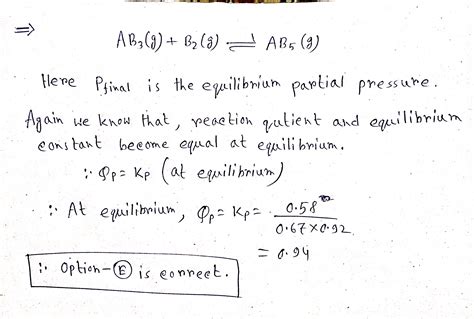 ⇒
AB₃(g) + B₂(g) ⇌ AB₅(g)
Here Pfinal is the equilibrium partial pressure.
Again we know that, reaction qutient and equilibrium
constant become equal at equilibrium.
∴ Qp = Kp (at equilibrium)
∴ At equilibrium, Qp = Kp = 0.58 / 0.67×0.92
= 0.94
∴ option-Ⓔ is correct.